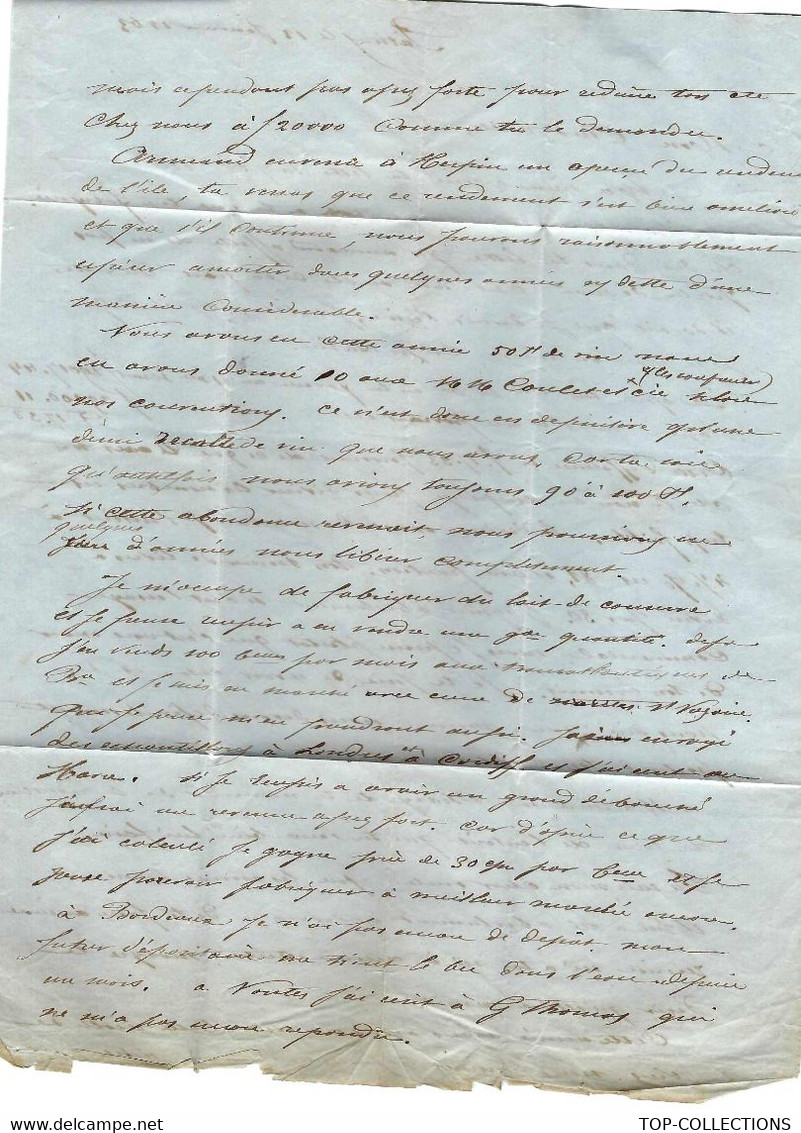 mais cependant pas assez forte pour réduire ton cte
chez nous à f 20000 comme tu le demandes.
Armand envoie à Herpin un aperçu du rendem
de l'île, tu verras que ce rendement s'est bien amélioré
et que s'il continue, nous pouvons raisonnablement
espérer amortir dans quelques années dette d'une
manière considérable.
Nous avons eu cette année 50 Tx de vin nous
en avons donné 10 aux MM Coulet et Cie selon
nos conventions. Ce n'est donc en définitive qu'une
demi récolte de vin que nous avons,
qu'autrefois nous avions toujours 90 à 100 Tx.
Si cette abondance revenait, nous pourrions en
quelques d'années nous libérer complètement.
Je m'occupe de fabriquer du lait de conserve
et je pense réussir à en vendre une gde quantité. déjà
j'en vends 100 btes par mois aux transatlantiques de
Bx et je suis en marché avec ceux de St Nazaire
qui je pense m'en prendront aussi. J'ai envoyé
des échantillons à Londres et à Cardiff et j'écris au
Havre. Si je réussis à avoir un grand débouché
j'aurai un revenu assez fort. Car d'après ce que
j'ai calculé je gagne près de 30 c par bte et je
pense pouvoir fabriquer à meilleur marché encore.
à Bordeaux je n'ai pas encore de dépôt. mon
futur dépositaire me tient le bec dans l'eau depuis
un mois. à Nantes j'ai écrit à G Thomas qui
ne m'a pas encore répondu.
TOP-COLLECTIONS